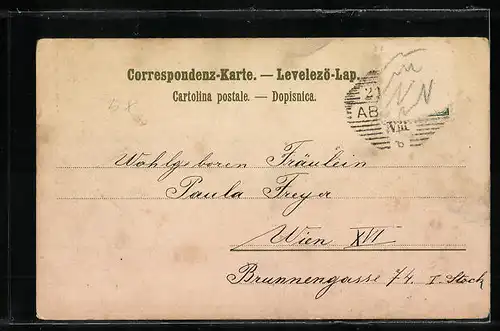 Correspondenz-Karte. — Levelező-Lap.
Cartolina postale. — Dopisnica.
21
AB
VIII
Wohlgeboren Fräulein
Paula Freya
Wien XVI
Brunnengasse 74. I. Stock